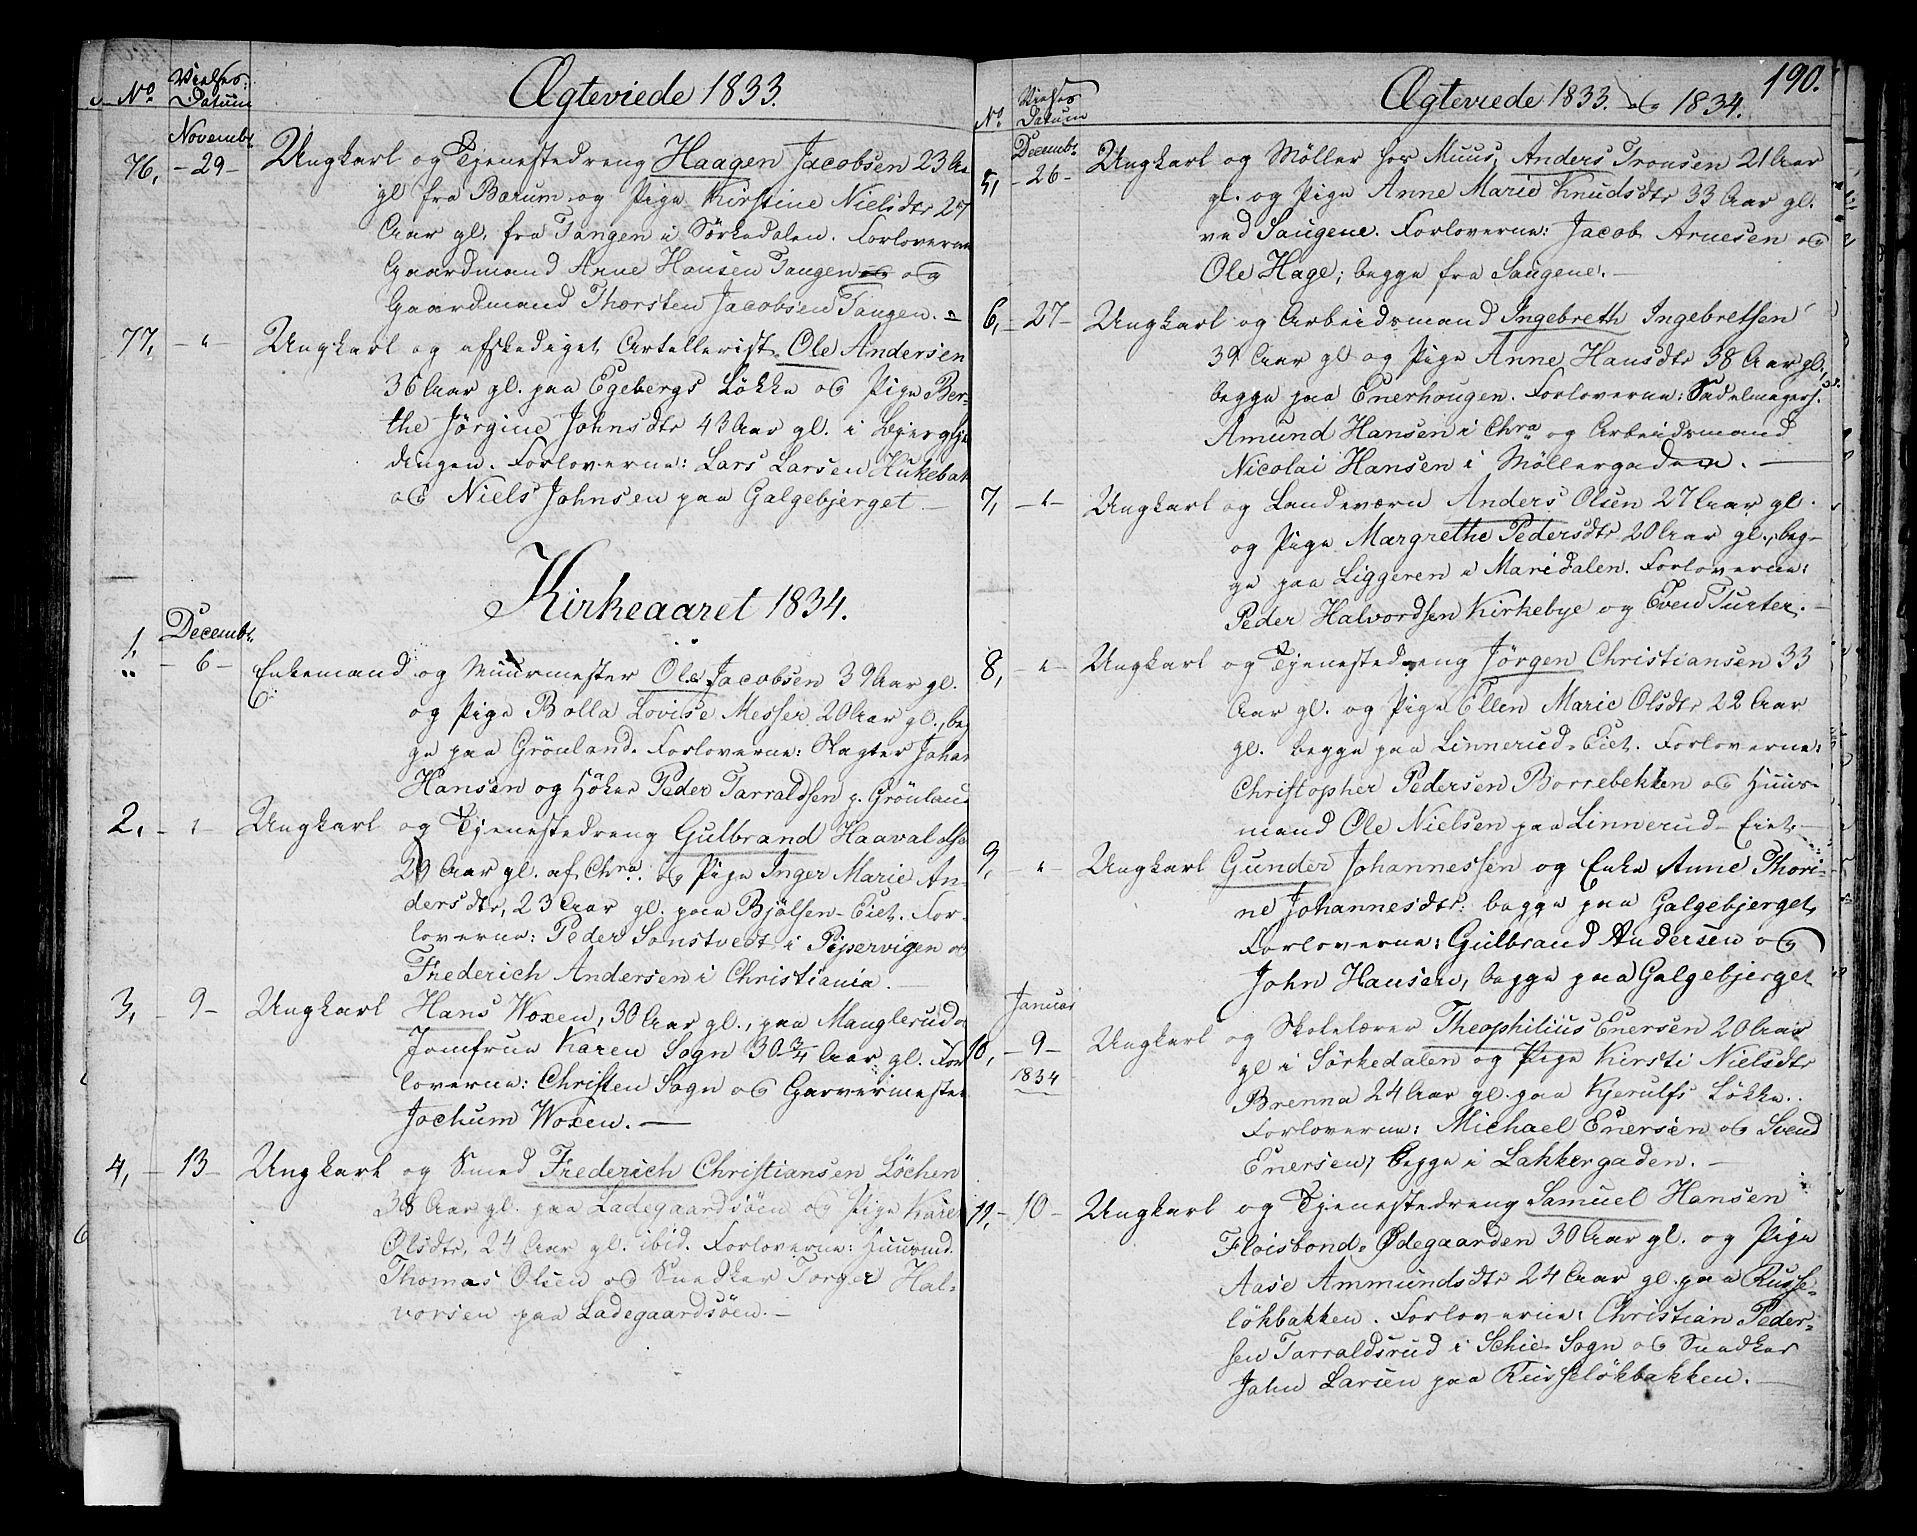 No. Vielses Datum
Ægteviede 1833.
Novembr.
76, - 29 - Ungkarl og Tjenestedreng Haagen Jacobsen 23 Aar
gl fra Barum og Pige Kirstine Nielsdtr 27
Aar gl. fra Tangen i Sørkedalen. Forloverne
Gaardmand Arne Hansen Tangen og
Gaardmand Thorsten Jacobsen Tangen.
77, - " - Ungkarl og afskediget Artellerist Ole Andersen
36 Aar gl. paa Egebergs Løkke og Pige Ber-
the Jørgine Johnsdtr 43 Aar gl. i
dingen. Forloverne: Lars Larsen Hukebak
og Niels Johnsen paa Galgebjerget. -
Kirkeaaret 1834.
Decembr.
1, - 6 - Enkemand og Muurmester Ole Jacobsen 39 Aar gl.
og Pige Bolla Lovise Messer 20 Aar gl., be
ge paa Grönland. Forloverne: Slagter Johan
Hansen og Höker Peder Tarraldsen p. Grönland
2, - " - Ungkarl og Tjenestedreng Gulbrand Haavalds
29 Aar gl. af Chra. og Pige Inger Marie An-
dersdtr, 23 Aar gl. paa Bjölsen-Eiet. For-
loverne: Peder Sonstvedt i Pipervigen og
Frederich Andersen i Christiania. -
3, - 9 - Ungkarl Hans Woxen, 30 Aar gl., paa Manglerud og
Jomfrue Karen Sogn 30 3/4 Aar gl. For
loverne: Christen Sogn og Garvermester
Jochum Woxen. -
4, - 13 - Ungkarl og Smed Frederich Christiansen Löchen
38 Aar gl. paa Ladegaardsöen og Pige Kare
Olsdtr, 24 Aar gl. ibid. Forloverne: Huusmd.
Thomas Olsen og Snedker Torger Hal-
vorsen paa Ladegaardsöen. -
190.
No. Vielses Datum
Ægteviede 1833. og 1834.
Decembr.
5, - 26 - Ungkarl og Möller hos Muus, Anders Tronsen 21 Aar
gl. og Pige Anne Marie Knudsdtr 33 Aar gl.
ved Saugene. Forloverne: Jacob Arnesen og
Ole Hage; begge fra Saugene. -
6, - 27 - Ungkarl og Arbeidsmand Ingebreth Ingebretsen
39 Aar gl og Pige Anne Hansdtr 38 Aar gl.,
begge paa Enerhougen. Forloverne: Sadelmagers.
Amund Hansen i Chra og Arbeidsmand
Nicolai Hansen i Möllergaden. -
7, - " - Ungkarl og Landeværn Anders Olsen 27 Aar gl.
og Pige Margrethe Pedersdtr 20 Aar gl., beg-
ge paa Liggeren i Maridalen. Forloverne:
Peder Halvordsen Kirkebye og Even Turter. -
8, - " - Ungkarl og Tjenestedreng Jörgen Christiansen 33
Aar gl. og Pige Ellen Marie Olsdtr 22 Aar
gl. begge paa Linnerud-Eiet. Forloverne:
Christopher Pedersen Borrebekken og Huus-
mand Ole Nielsen paa Linnerud-Eiet. -
9, - " - Ungkarl Gunder Johannessen og Enke Anne Thori-
ne Johannesdtr: begge paa Galgebjerget,
Forloverne: Gulbrand Andersen og
John Hansen, begge paa Galgebjerget
Januar
10, - 9 - Ungkarl og Skolelærer Theophilius Enersen 20 Aar
1834
gl i Sörkedalen og Pige Kirsti Nielsdtr
Brenna 24 Aar gl. paa Kjerulfs Løkke.
Forloverne: Michael Enersen og Svend
Enersen, begge i Lakkergaden. -
11, - 10 - Ungkarl og Tjenestedreng Samuel Hansen
Floisbond-Ødegaarden 30 Aar gl. og Pige
Aase Ammundsdtr 24 Aar gl. paa Russe-
lökbakken. Forloverne: Christian Peder-
sen Tarraldsrud i Schie-Sogn og Snedker
John Larsen paa Russelökbakken. -